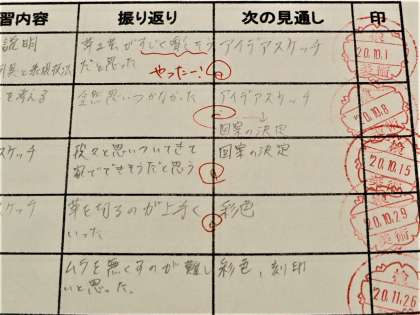 習内容 振り返り 次の見通し 印
説明 アイデアスケッチ 20.10.1
だと思った やったー!
を考える 全然思いつかなかった アイデアスケッチ 20.10.8
図案の決定
スケッチ 段々と思いついてきて 図案の決定 20.10.15
できそうだと思う
スケッチ 草を切るのが上手く 彩色 20.10.29
いった
ムラを無くすのが難し 彩色、刻印 20.11.26
いと思った。